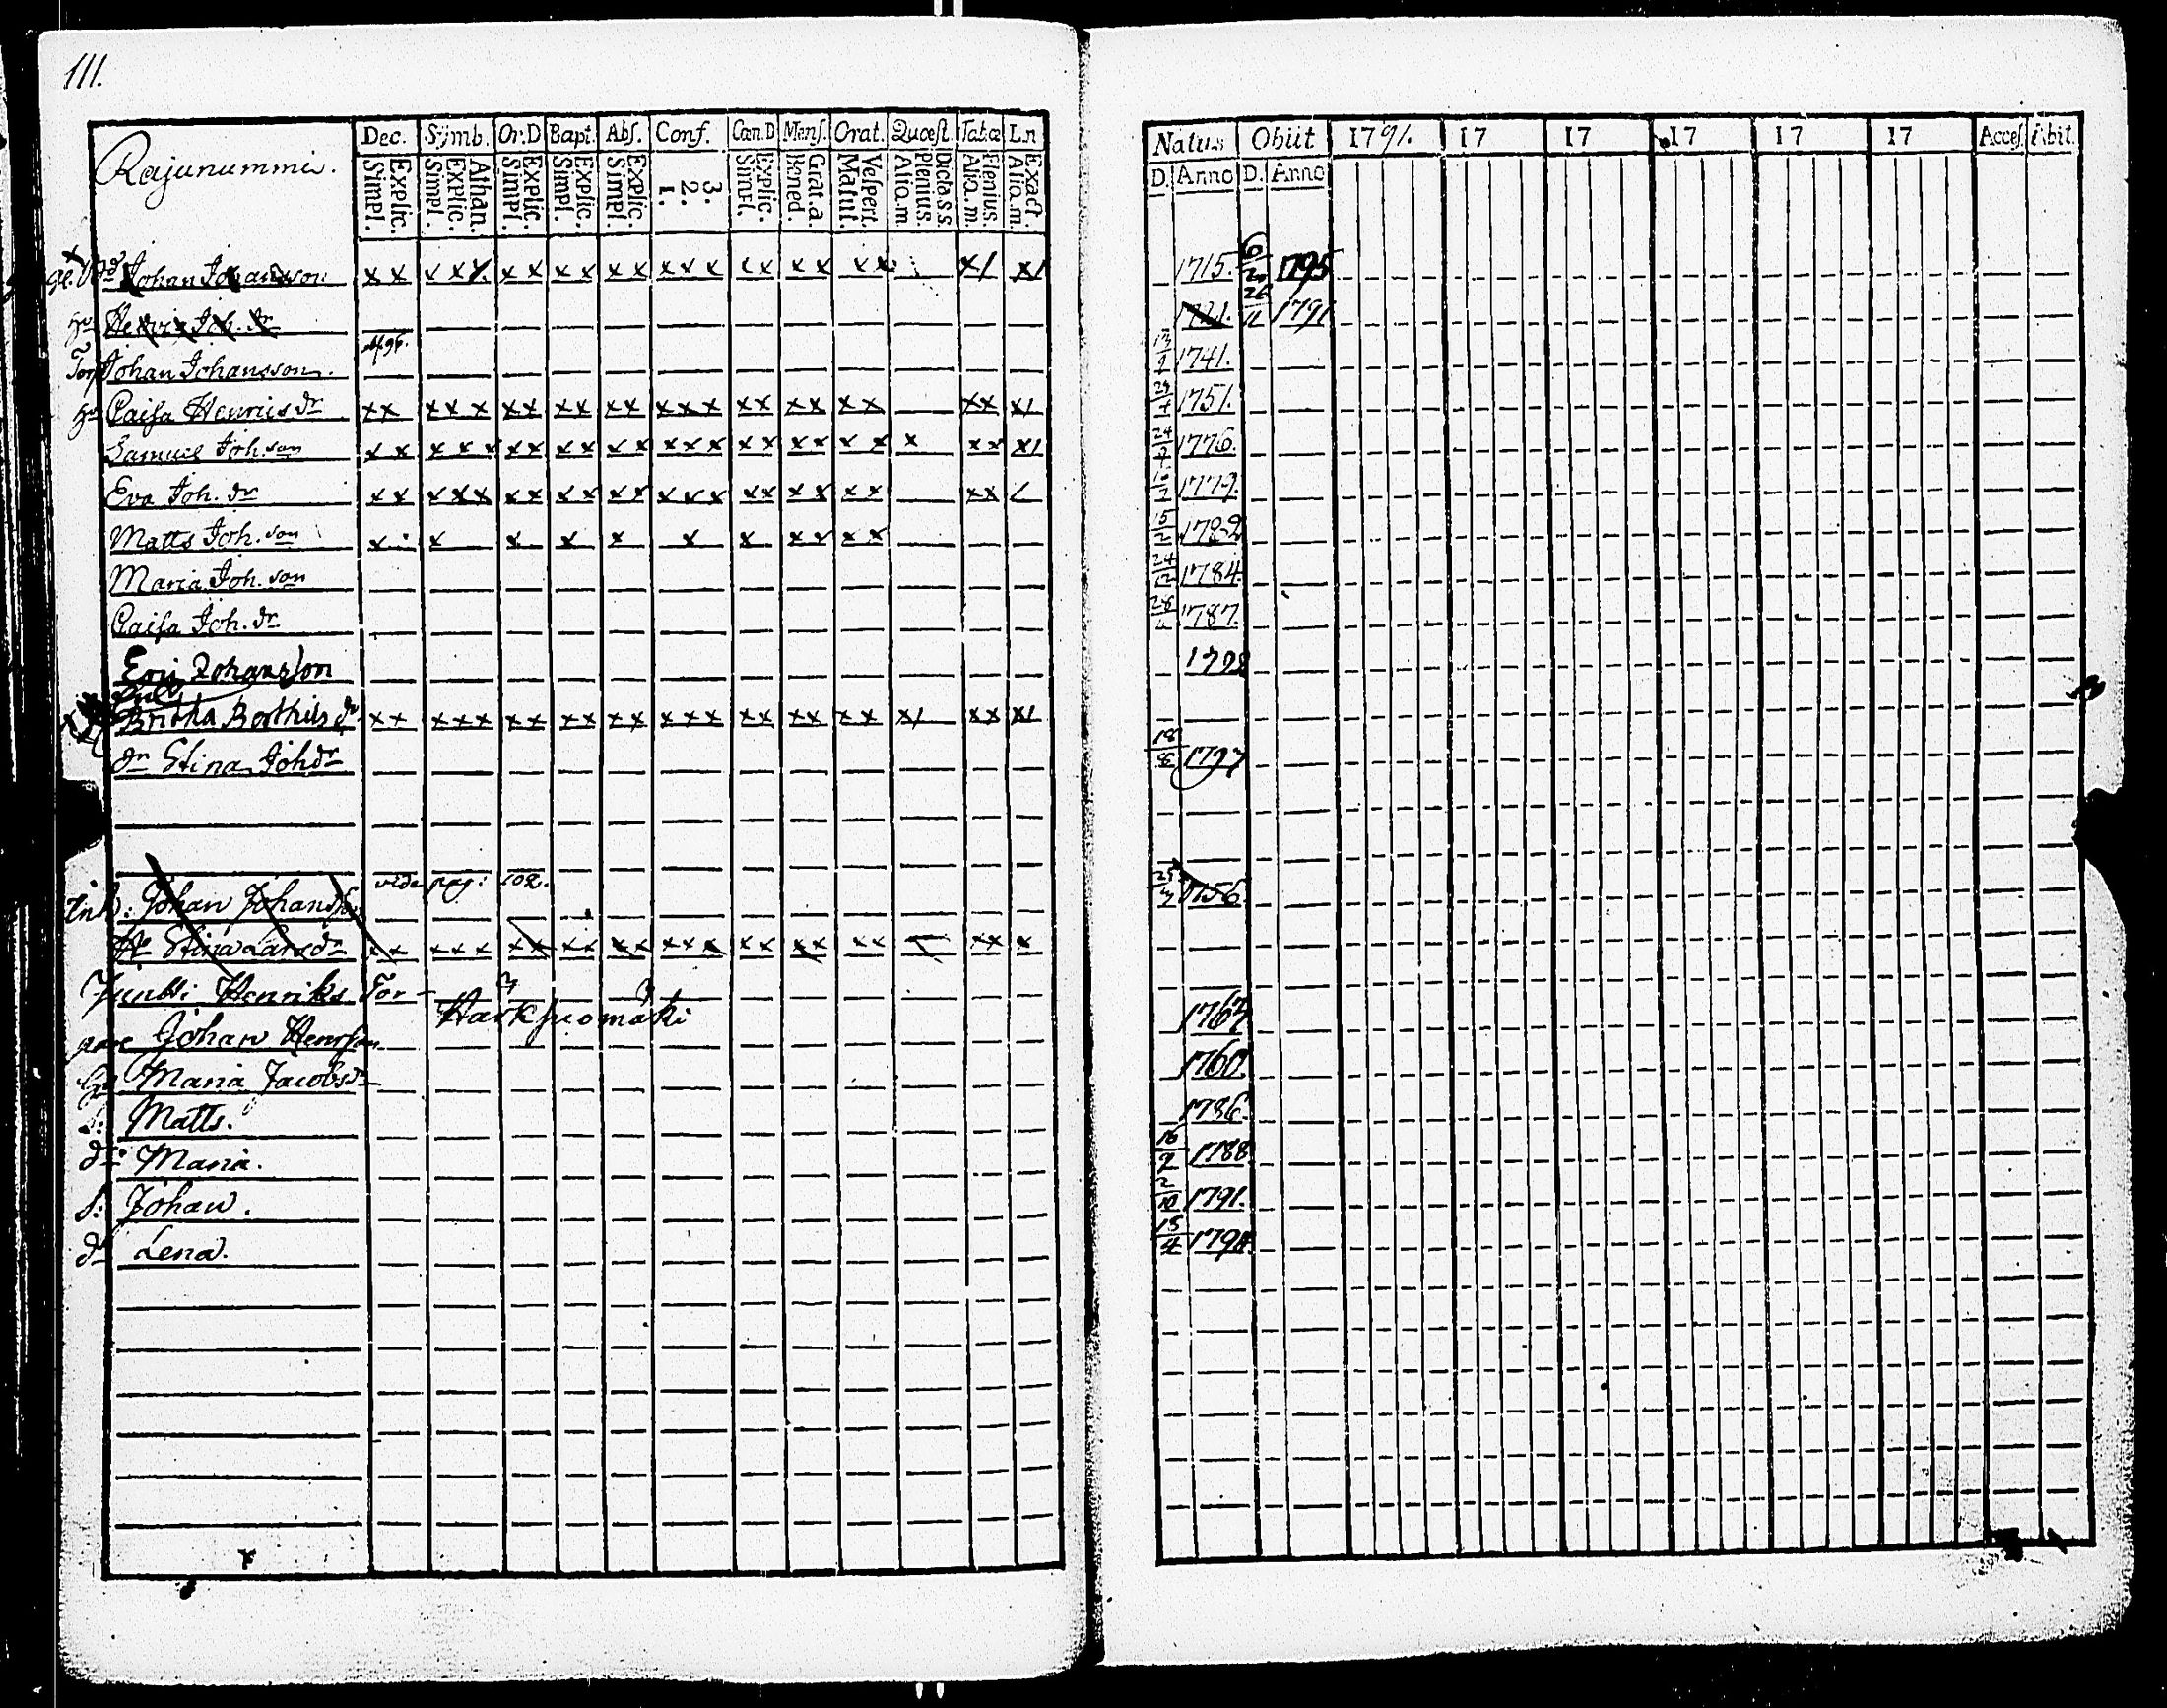 111.
Rajunummi.
Dec. Sijmb. Or.D Bapt. Abs. Conf. Cœn.D Mens. Orat. Quœst. Tab.œ Ln
Simpl. Explic. Simpl. Explic. Athan. Simpl. Explic. Simpl. Explic. Simpl. Explic. 1. 2. 3. Simpl. Explic. Bened. Grat.a. Matut. Vespert. Aliq.m. Plenius. Dicta.s.s. Aliq.m. Plenius. Aliq.m. Exact
Natus Obiit 1791. 17 17 17 17 17 Acces. Abit.
D. Anno D. Anno
Johan Johansson x x x x x x x x x x x x x x x x x x x x x/ x/ 1715. 6/20 1795
Hu Hedvig Joh. dr 1721. 26/11 1791
Torp Johan Johansson. 13/9 1741.
Hu Caisa Henrics dr x x x x x x x x x x x x x x x x x x x x x x x/ 1751.
Samuel Joh.son x x x x x x x x x x x x x x x x x x x x x x x x/ 24/7 1776.
Eva Joh. dr x x x x x x x x x x x x x x x x x x x x x x 1779.
Matts Joh.son x x x x x x x x x x x 15/2 1782
Maria Joh. son 24/12 1784.
Caisa Joh. dr 1787.
Eric Johansson 1792
Britha Berthils dr x x x x x x x x x x x x x x x x x x x/ x x x/
dr Stina Joh dr 18/8 1797
vide pag: 102.
Inh: Johan Johansson 1756.
Hu Stina Lars dr x x x x x x x x x x x x x x x x x x x x x x x
Juutti Henriks Tor-
Harksuomäki
pare Johan Henrsson 1767
Hu Maria Jacobs dr 1760.
S: Matts. 1786.
dr: Maria. 16/2 1788
S: Johan. 2/10 1791.
dr Lena. 15/4 1794.